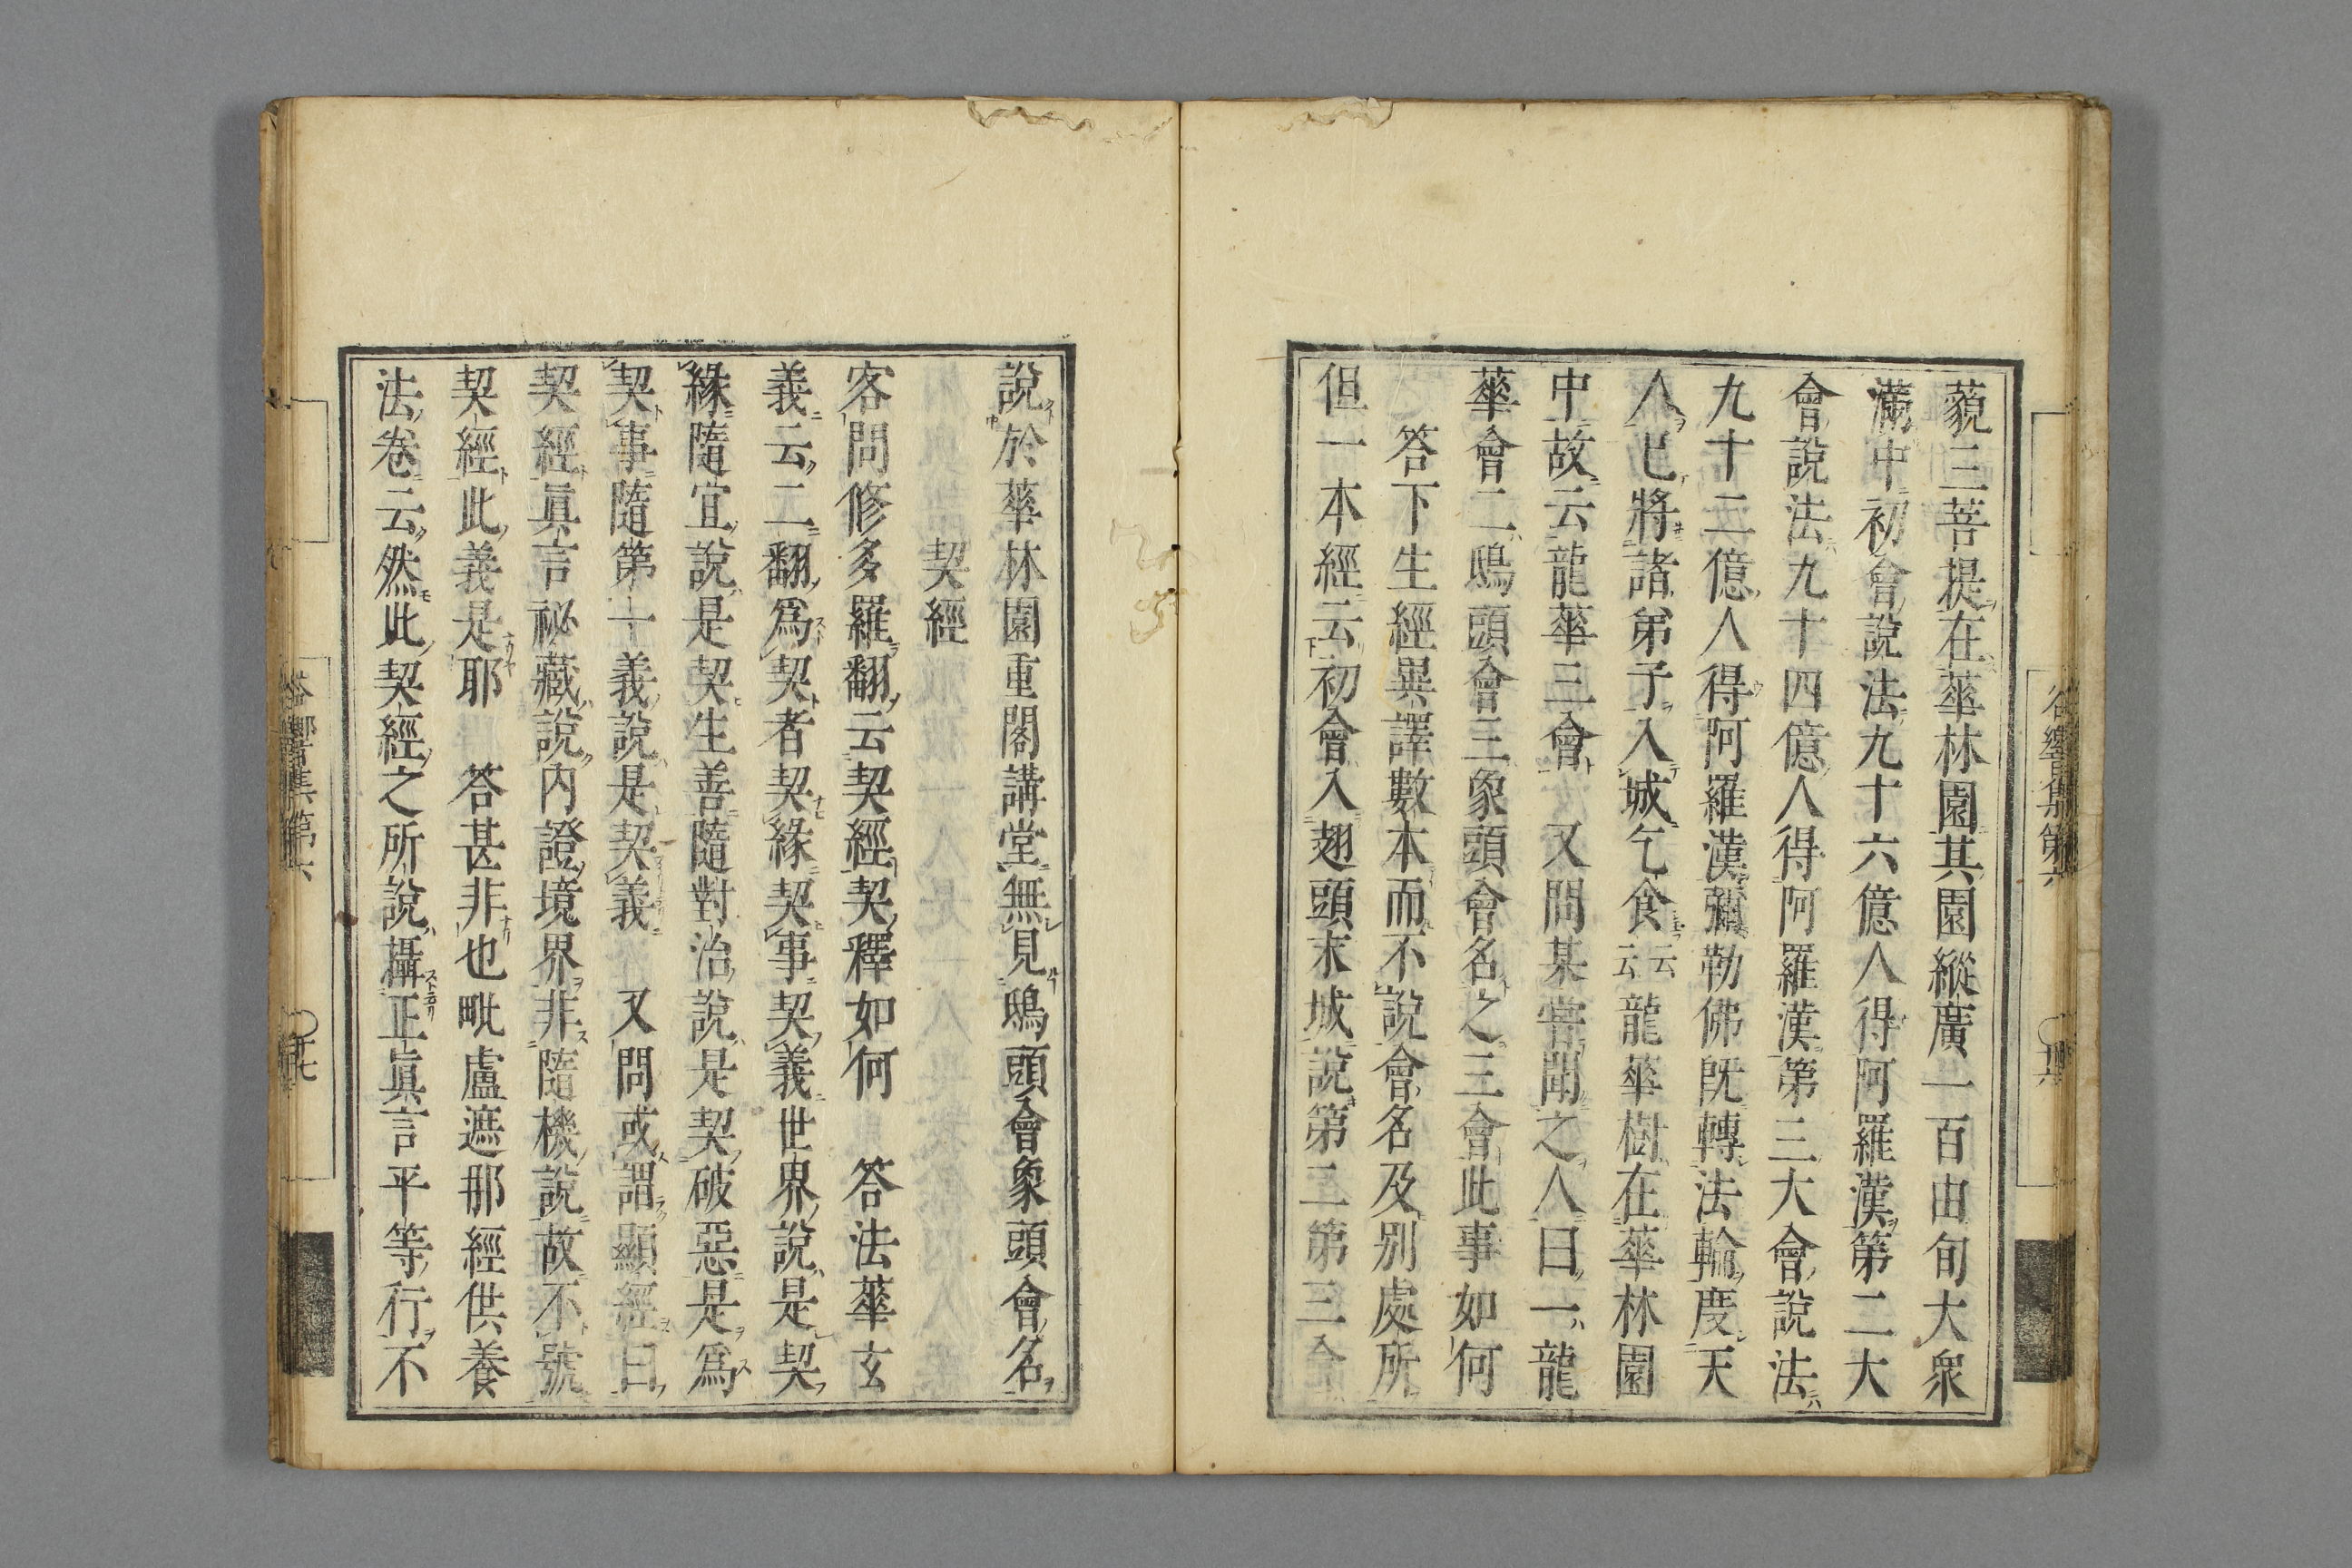 藐三菩提在華林園其園縱廣一百由旬大衆
滿中初會說法九十六億人得阿羅漢第二大
會說法九十四億人得阿羅漢第三大會說法
九十二億人得阿羅漢彌勒佛既轉法輪度天
人已將諸弟子入城乞食云云龍華樹在華林園
中故云龍華三會 又問某嘗聞之人曰一龍
華會二鴟頭會三象頭會名之三會此事如何
答下生經異譯數本而不說會名及別處所
但一本經云初會入翅頭末城說第二第三會
說於華林園重閣講堂無見鴟頭會象頭會名
契經
客問修多羅翻云契經契釋如何 答法華玄
義云二翻爲契者契緣契事契義世界說是契
緣隨宜說是契生善隨對治說是契破惡是爲
契事隨第一義說是契義 又問或謂顯經曰
契經眞言祕藏說內證境界非隨機說故不號
契經此義是耶 答甚非也毗盧遮那經供養
法卷云然此契經之所說攝正眞言平等行不
谷響集第六
谷響集第六